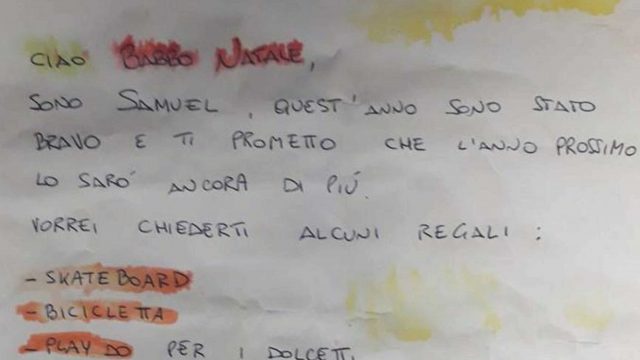 CIAO BABBO NATALE,
SONO SAMUEL, QUEST'ANNO SONO STATO
BRAVO E TI PROMETTO CHE L'ANNO PROSSIMO
LO SARÓ ANCORA DI PIÚ.
VORREI CHIEDERTI ALCUNI REGALI :
- SKATEBOARD
- BICICLETTA
- PLAY DO PER I DOLCETTI